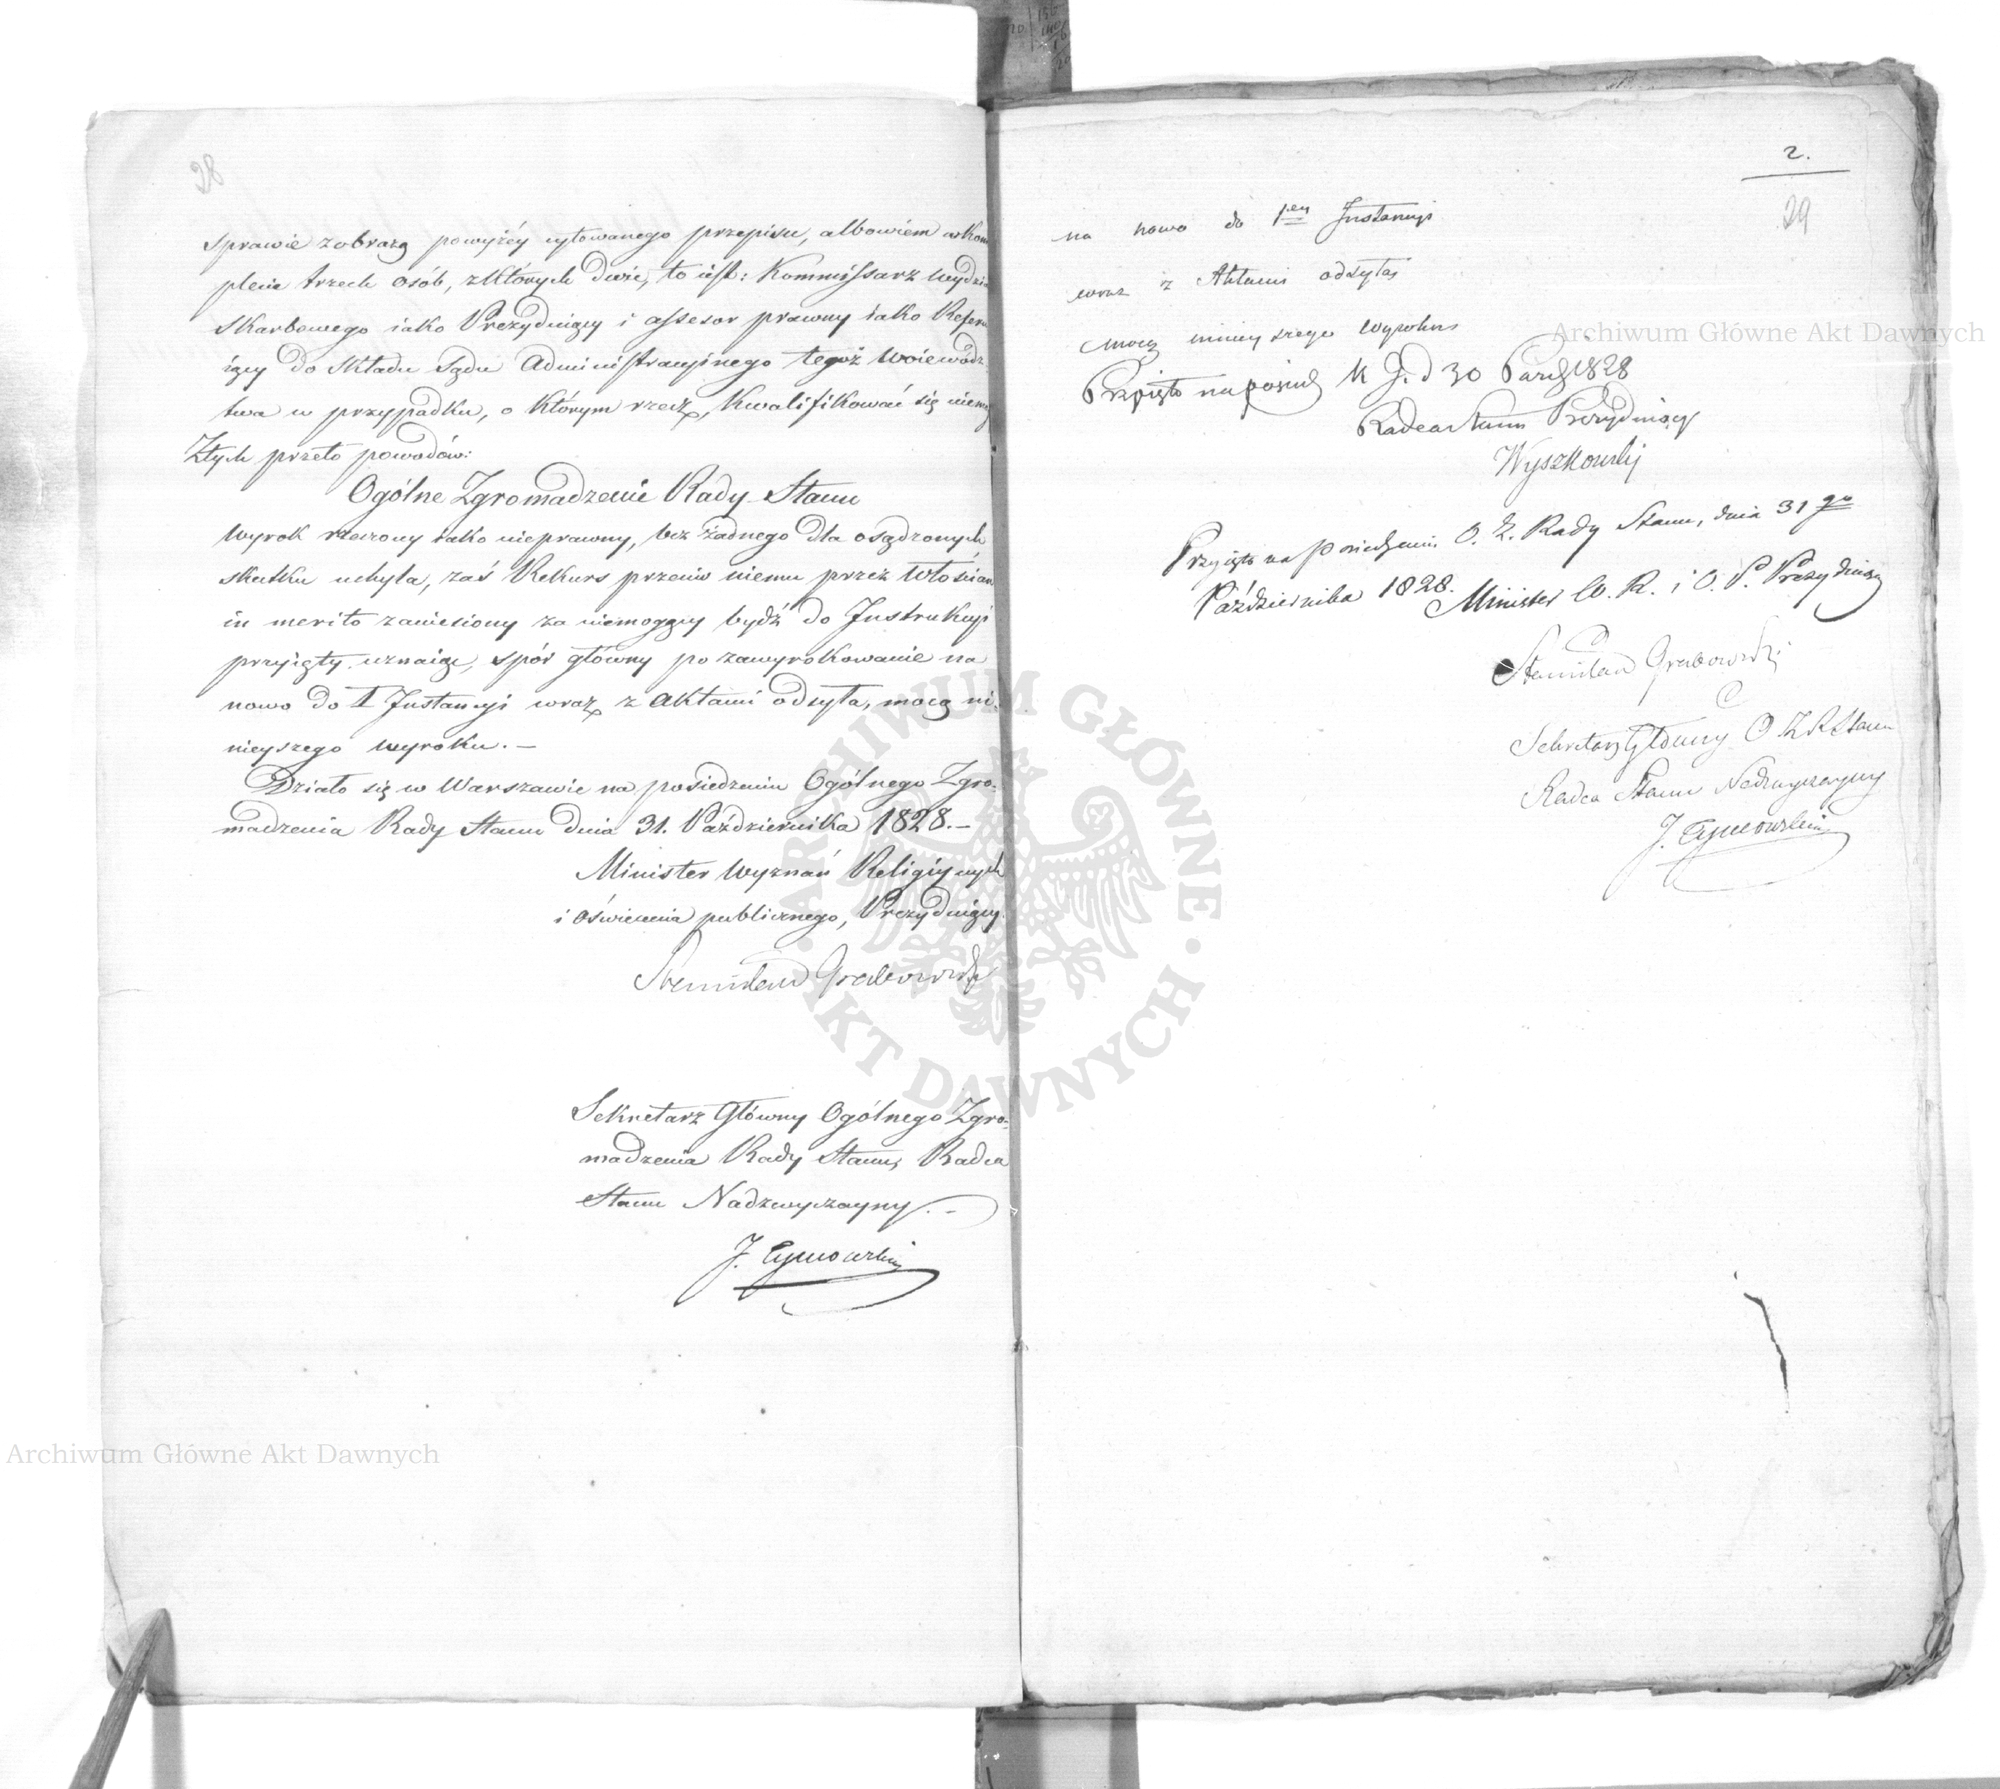 28
sprawie z obrazą powyżéy cytowanego przepisu, albowiem w kom
plecie trzech osób, z których dwie, to iest: Kommissarz Wydzia
Skarbowego iako Prezyduiący i assesor prawny iako Refere
iący do składu Sądu Administracyinego tegoż Woiewódz
twa w przypadku, o którym rzecz, kwalifikować się niemogą
Z tych przeto powodów:
Ogólne Zgromadzenie Rady Stanu
Wyrok rzeczony iako nieprawny, bez żadnego dla osądzonych
skutku uchyla, zaś Rekurs przeciw niemu przez Włościan
in merito zaniesiony za niemogący bydź do Instrukcyi
przyięty uznaiąc, spór główny po zawyrokowanie na
nowo do I Instancyi wraz z aktami odsyła, mocą ni-
nieyszego wyroku.—
Działo się w Warszawie na posiedzeniu Ogólnego Zgro-
madzenia Rady Stanu dnia 31. Października 1828.—
Minister Wyznań Religiynych
i Oświecenia publicznego, Prezyduiący.
Stanisław Grabowski
Sekretarz Główny Ogólnego Zgro-
madzenia Rady Stanu, Radca
Stanu Nadzwyczayny.—
J. Tymowski
2.
29
na nowo do 1en Instancyi
wraz z Aktami odsyła
mocą ninieyszego Wyroku
Przyięto na posied K J. d 30 Paźdz 1828
Radca Stanu Prezyduiący
Wyszkowski
Przyięto na posiedzeniu O. Z. Rady Stanu, dnia 31go
Października 1828. Minister W. R. i O. P. Prezyduiący
Stanisław Grabowski
Sekretarz Główny O Z R Stanu
Radca Stanu Nadzwyczayny
J. Tymowski
Archiwum Główne Akt Dawnych
Archiwum Główne Akt Dawnych
ARCHIWUM GŁÓWNE · AKT DAWNYCH ·